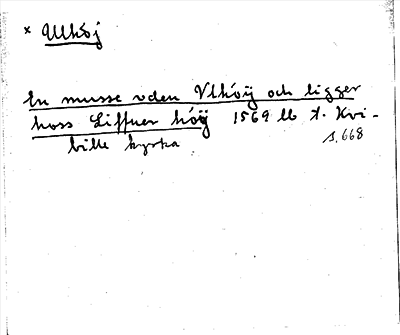 × Ullhöj
En musse uden Vlhöÿ och ligger
hoss Liffuer höÿ 1569 lb t. Kvi-
bille kyrka s. 668